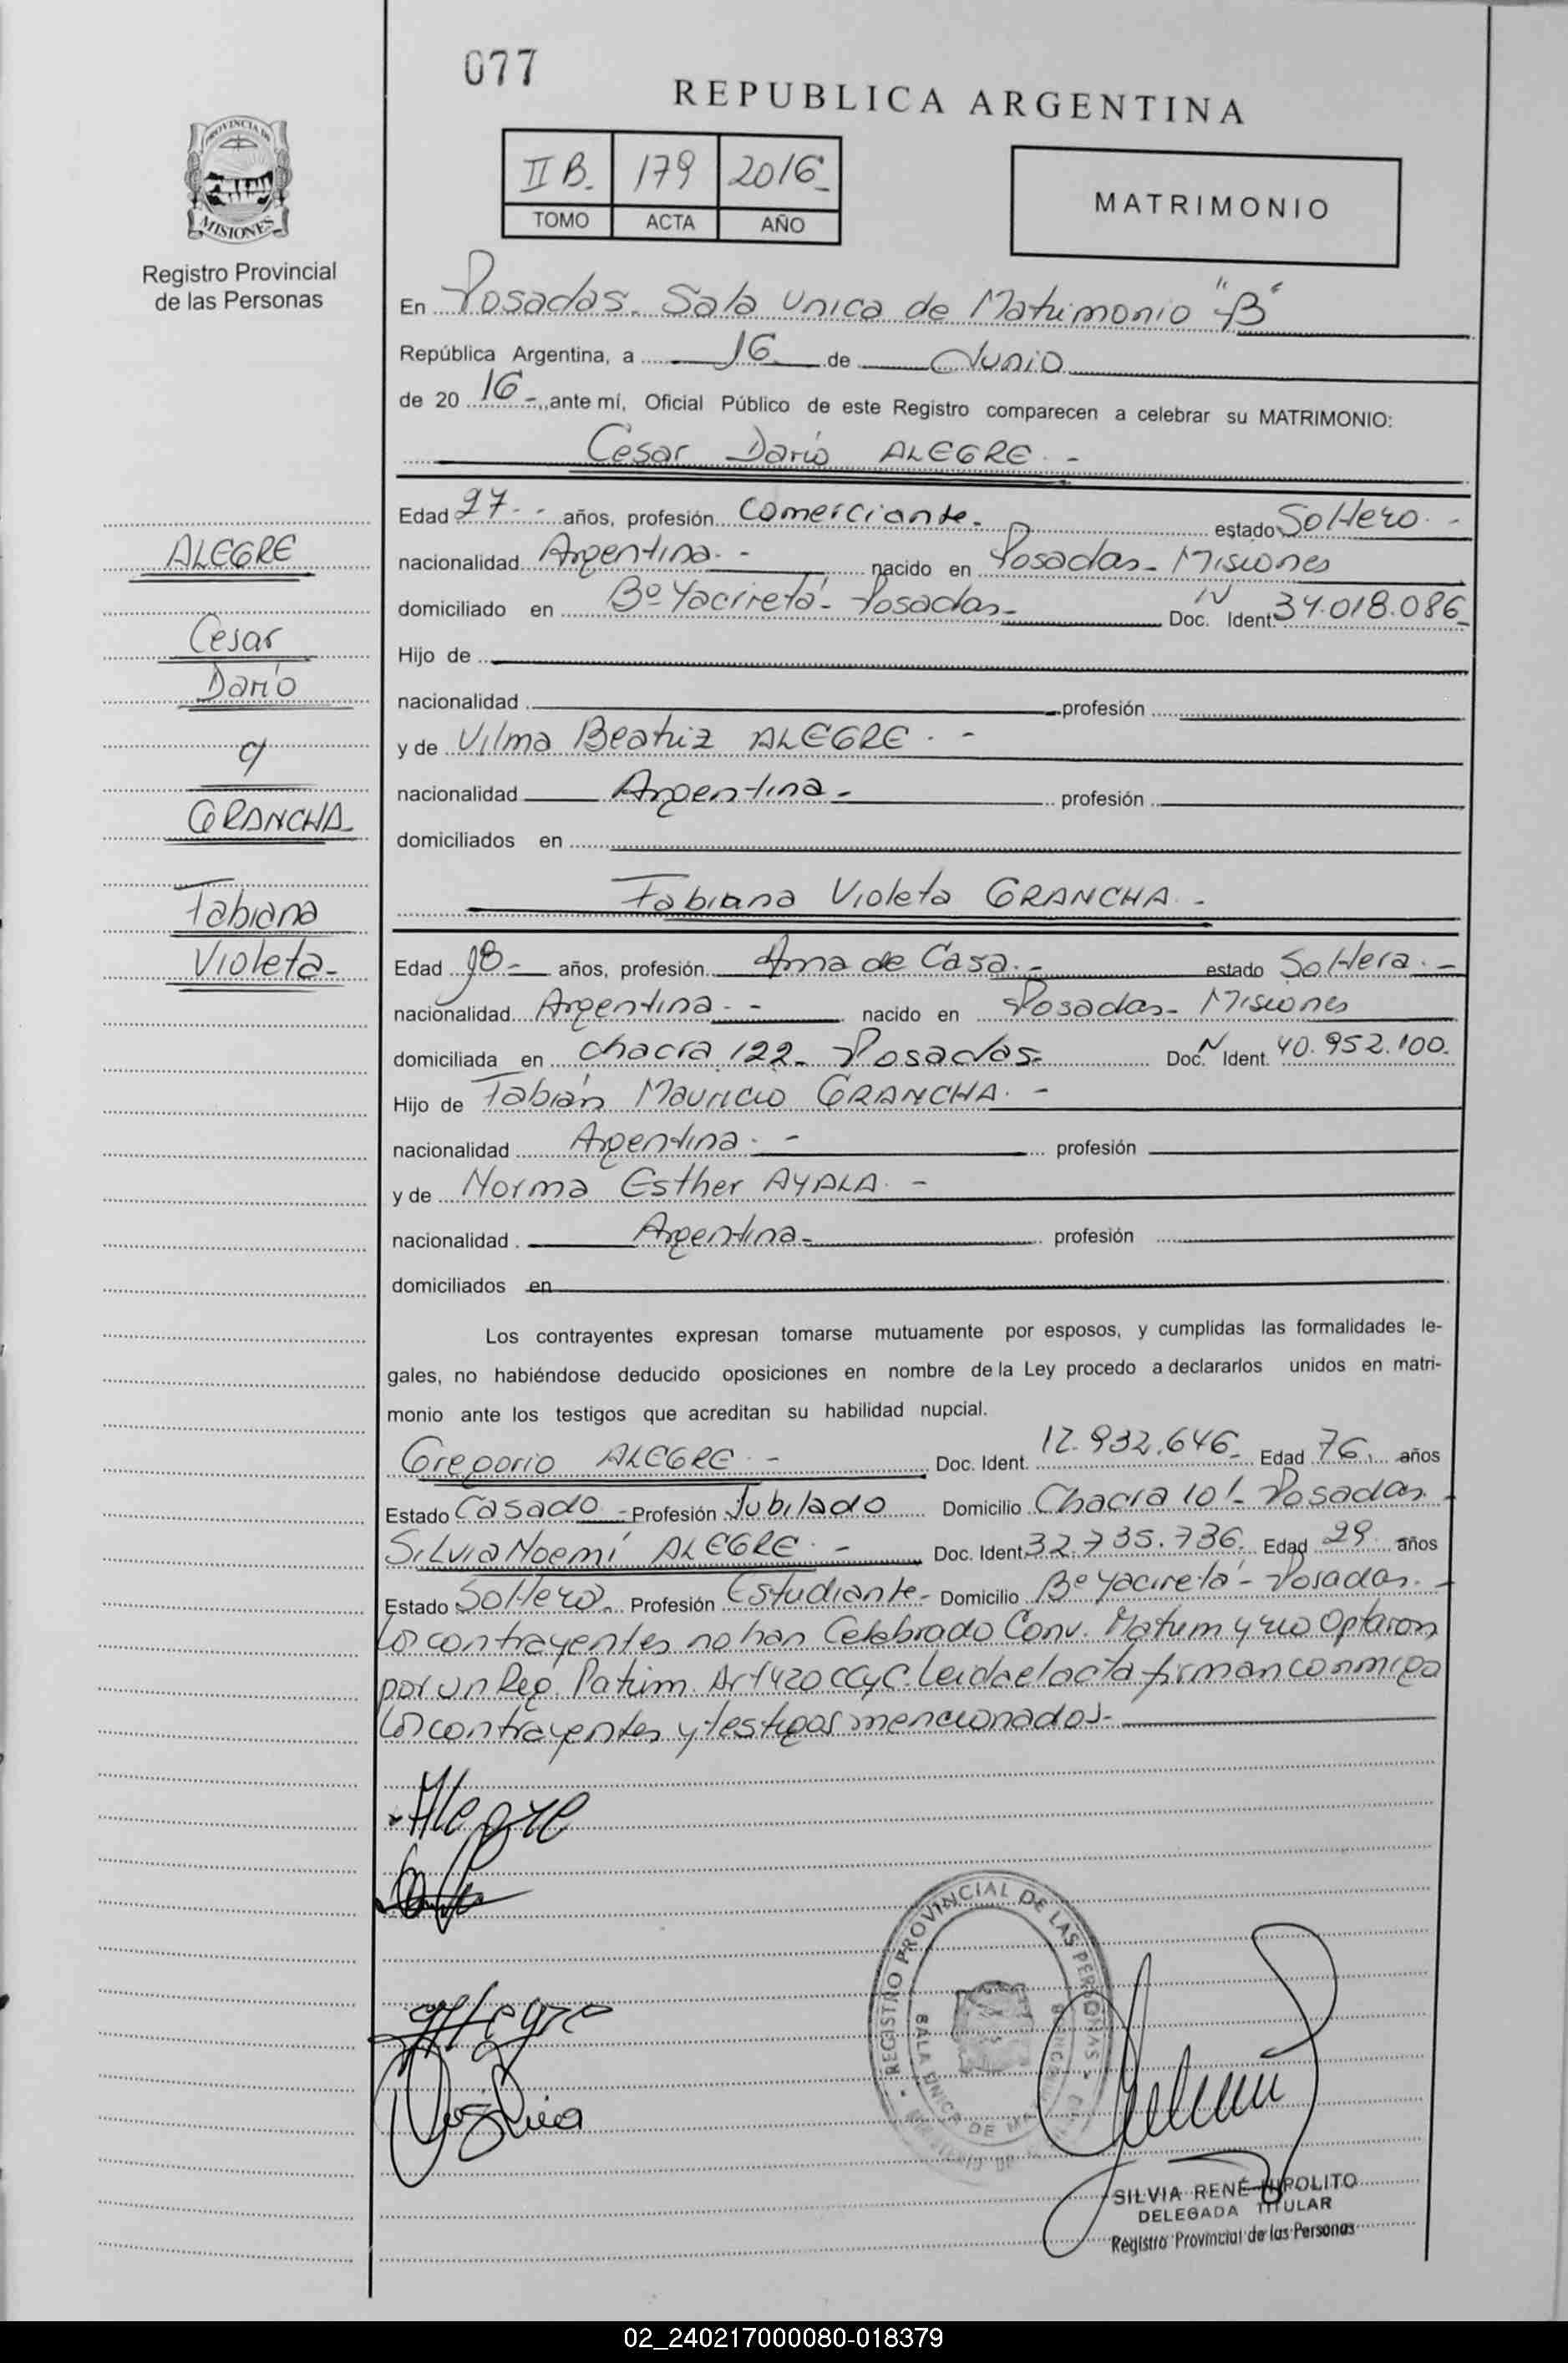 077
REPUBLICA ARGENTINA
PROVINCIA DE
MISIONES
Registro Provincial
de las Personas
II B. 179 2016
TOMO ACTA AÑO
MATRIMONIO
En Posadas. Sala Unica de Matrimonio "B"
República Argentina, a 16 de Junio
de 20 16 -, ante mí, Oficial Público de este Registro comparecen a celebrar su MATRIMONIO:
Cesar Darío ALEGRE. -
Edad 27 - años, profesión Comerciante. estado Soltero. -
nacionalidad Argentina. - nacido en Posadas - Misiones
domiciliado en Bº Yacireta - Posadas - Doc. N Ident. 34.018.086
Hijo de
nacionalidad profesión
y de Vilma Beatriz ALEGRE. -
nacionalidad Argentina - profesión
domiciliados en
Fabiana Violeta GRANCHA. -
Edad 18 - años, profesión Ama de Casa. - estado Soltera. -
nacionalidad Argentina. - nacido en Posadas - Misiones
domiciliada en chacra 122 - Posadas - Doc. N Ident. 40.952.100.
Hijo de Fabián Mauricio GRANCHA. -
nacionalidad Argentina. - profesión
y de Norma Esther AYALA. -
nacionalidad Argentina - profesión
domiciliados en
Los contrayentes expresan tomarse mutuamente por esposos, y cumplidas las formalidades le-
gales, no habiéndose deducido oposiciones en nombre de la Ley procedo a declararlos unidos en matri-
monio ante los testigos que acreditan su habilidad nupcial.
Gregorio ALEGRE. - Doc. Ident. 12.932.646 - Edad 76 años
Estado Casado - Profesión Jubilado Domicilio Chacra 101 - Posadas
Silvia Noemí ALEGRE. - Doc. Ident. 32.735.736. Edad 29 años
Estado Soltero. Profesión Estudiante - Domicilio Bº Yacireta - Posadas. -
Los contrayentes no han Celebrado Conv. Matrim y no Optaron
por un Reg. Patrim. Art 420 CCyC. Leida el acta firman conmigo
los contrayentes y testigos mencionados. -
ALEGRE
Cesar
Darío
c/
GRANCHA
Fabiana
Violeta -
Alegre
REGISTRO PROVINCIAL DE LAS PERSONAS
SALA UNICA DE
SILVIA RENÉ HIPOLITO
DELEGADA TITULAR
Registro Provincial de las Personas
02_240217000080-018379